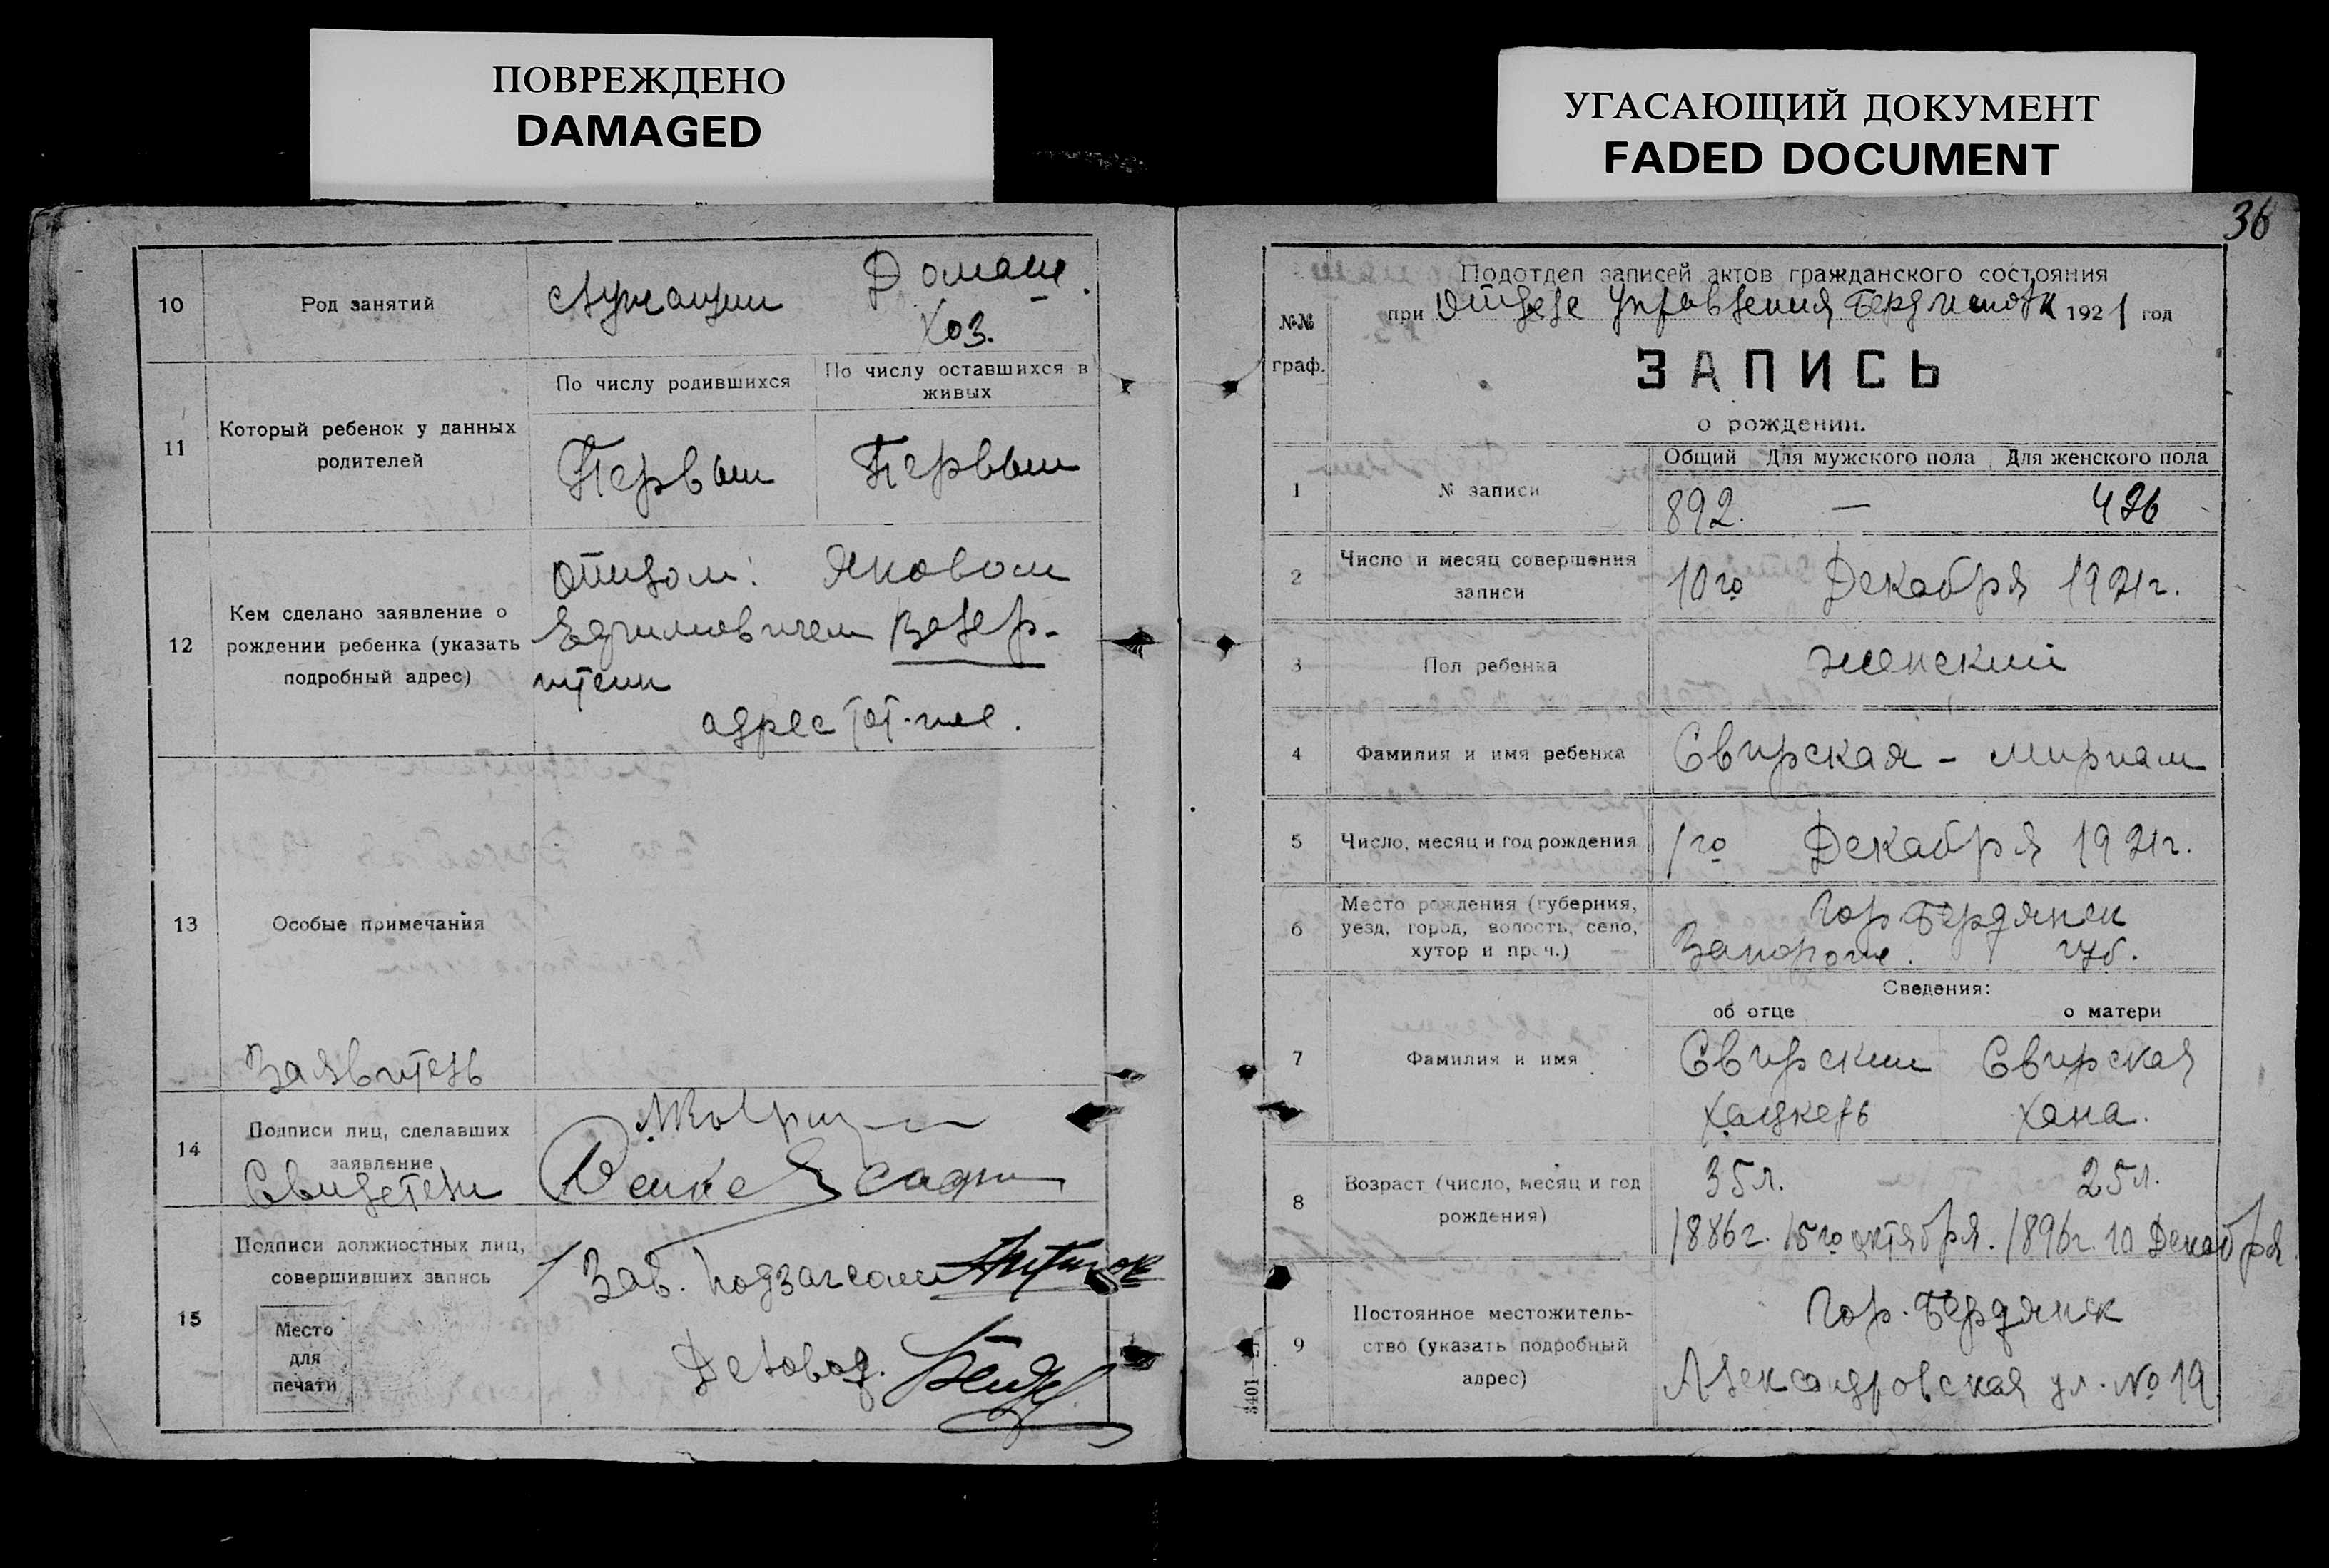 ПОВРЕЖДЕНО
DAMAGED
УГАСАЮЩИЙ ДОКУМЕНТ
FADED DOCUMENT
10
Род занятий
Служащий
Домаш.
Хоз.
11
Который ребенок у данных
родителей
По числу родившихся
По числу оставшихся в
живых
Первый
Первый
12
Кем сделано заявление о
рождении ребенка (указать
подробный адрес)
Отцом: Яковом
Ефимовичем Валер-
штейн
адрес тот-же.
13
Особые примечания
Заявитель
14
Подписи лиц, сделавших
заявление
Свидетели
15
Подписи должностных лиц,
совершивших запись
Место
для
печати
Зав. Подзагсом
Деловод.
36
№№
граф.
Подотдел записей актов гражданского состояния
при Отделе Управления 1921 год
ЗАПИСЬ
о рождении.
Общий Для мужского пола Для женского пола
1
№ записи
892. — 426
2
Число и месяц совершения
записи
10го Декабря 1921г.
3
Пол ребенка
женский
4
Фамилия и имя ребенка
Свирская - Мириам
5
Число, месяц и год рождения
1го Декабря 1921г.
6
Место рождения (губерния,
уезд, город, волость, село,
хутор и проч.)
Гор Бердянск
Запорож. губ.
Сведения:
об отце о матери
7
Фамилия и имя
Свирский Свирская
Хацкель Хана.
8
Возраст (число, месяц и год
рождения)
35л. 25л.
1886г. 15го октября. 1896г. 10 Декабря
9
Постоянное местожитель-
ство (указать подробный
адрес)
Гор. Бердянск
Александровская ул. № 19
3401